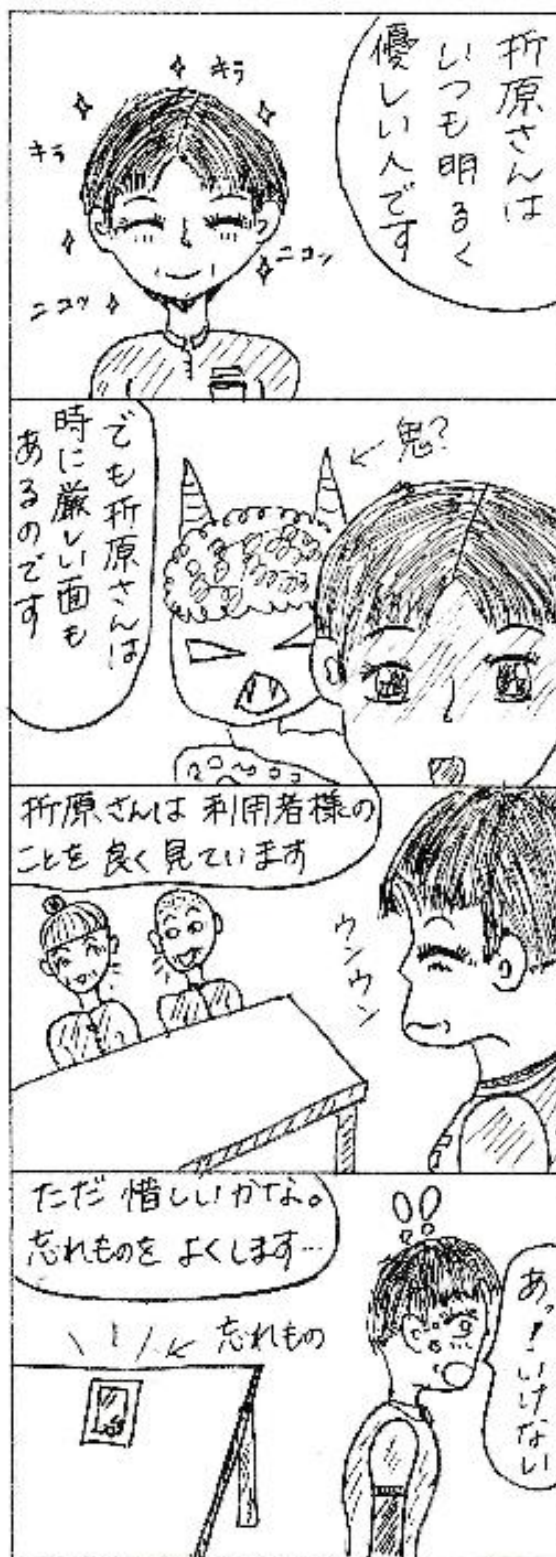 折原さんは
いつも明るく
優しい人です
キラ
キラ
ニコッ
ニコッ
鬼?
でも折原さんは
時に厳しい面も
あるのです
折原さんは利用者様の
ことを良く見ています
ウンウン
ただ惜しいかな。
忘れものをよくします…
あっ!いけない
忘れもの